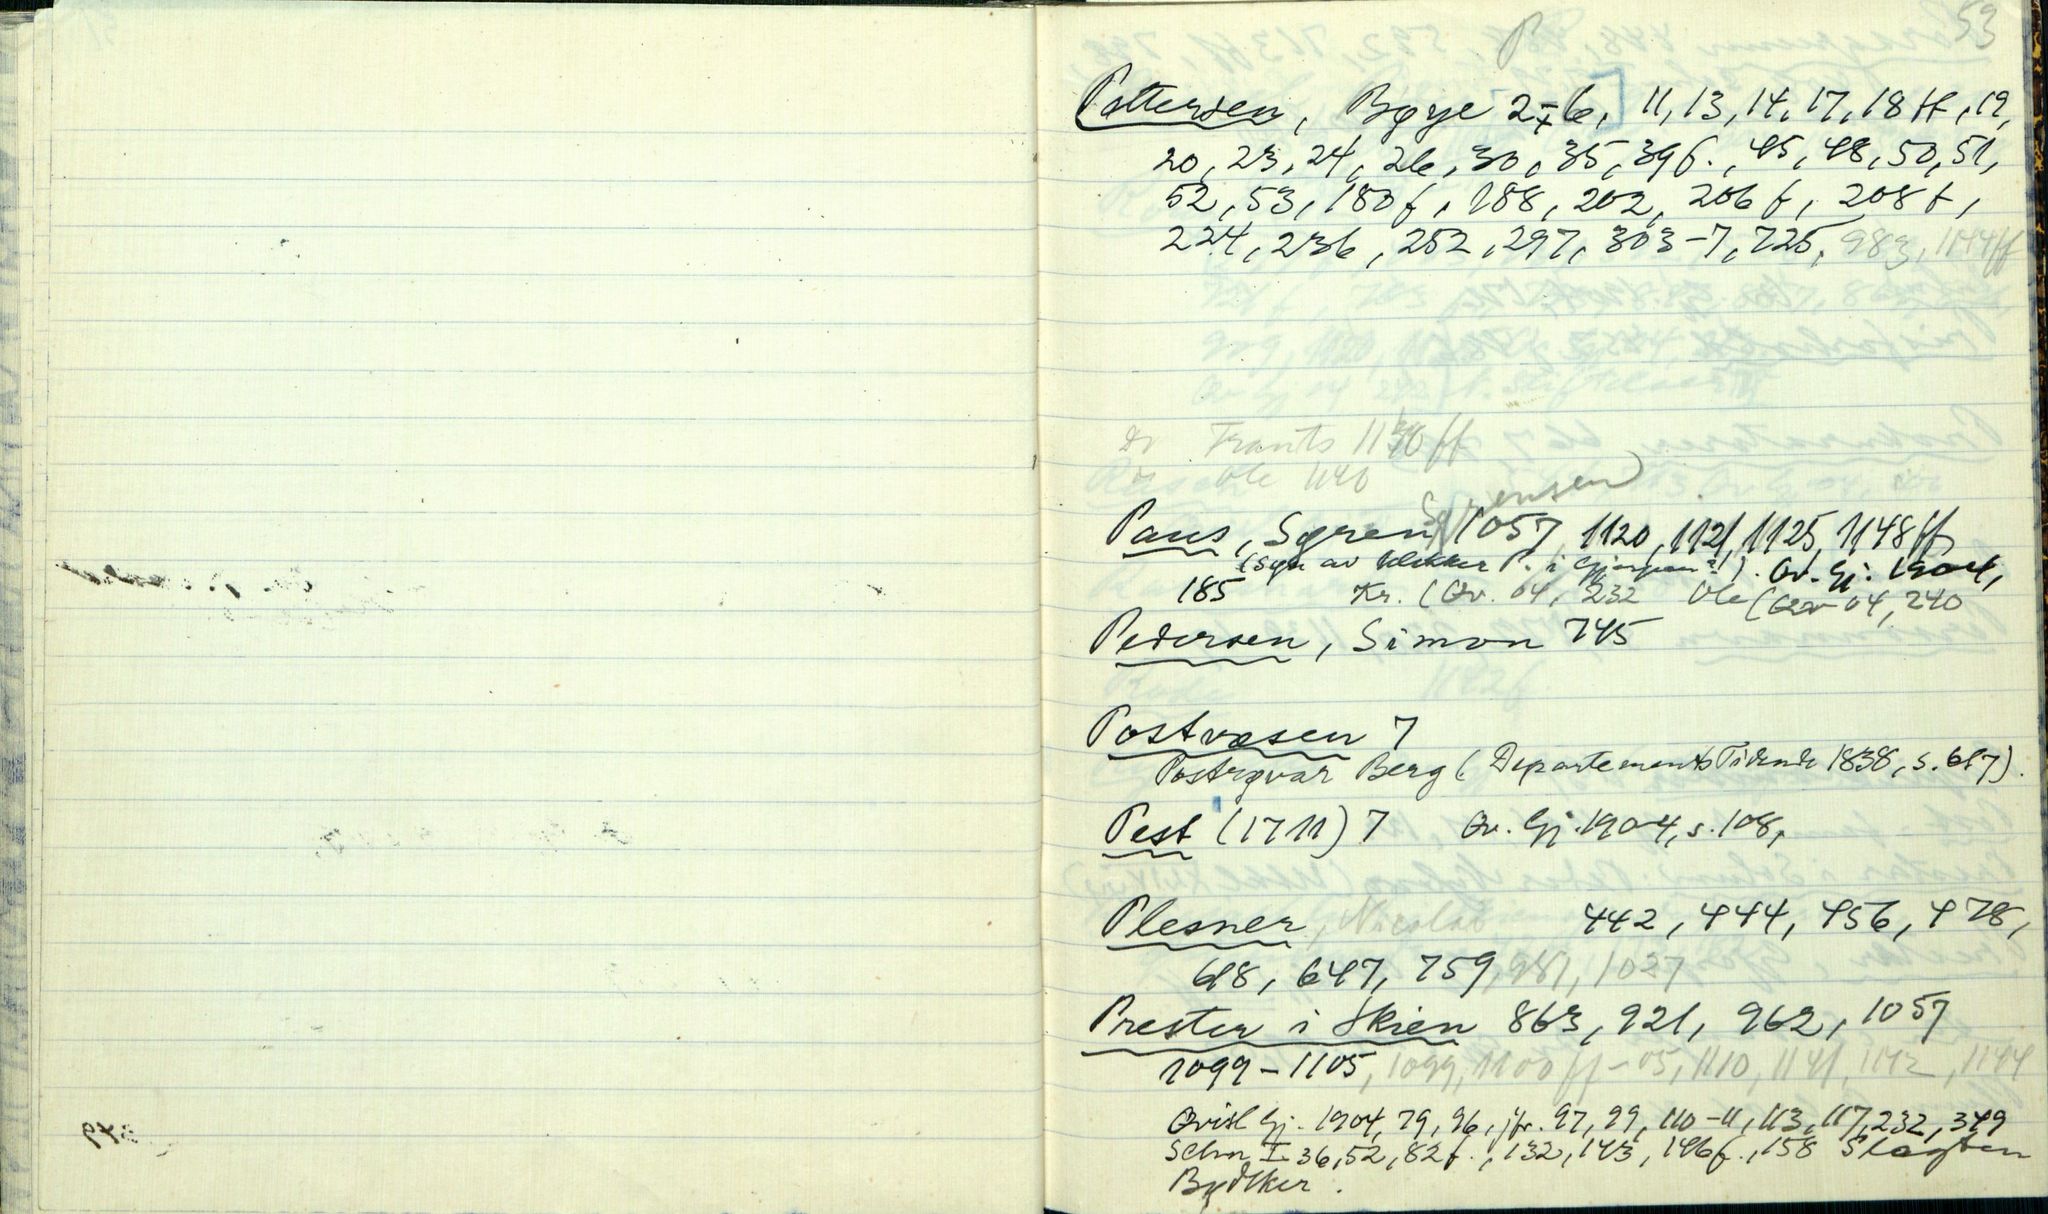 P 53
Pettersen, Bøye 2, 6, 11, 13, 14, 17, 18 ff, 19,
20, 23, 24, 26, 30, 35, 39 f., 45, 48, 50, 51,
52, 53, 180 f, 188, 202, 206 f, 208 f,
224, 236, 252, 297, 303-7, 725, 983, 1144 ff
Dr Frants 1140 ff
Ole 1140
Sørensen
Paus, Søren 1057, 1120, 1121, 1125, 1148 ff
(søn av klokker P. i Gjerpen?). Qv. Gj. 1904,
185 Kr. (Qv. 04, 232 Ole (Qv 04, 240
Pedersen, Simon 745
Postvæsen 7
Postrøvar Berg (Departements Tidende 1838, s. 617).
Pest (1711) 7 Qv. Gj. 1904, s. 108,
Plesner, Nicolai 442, 444, 456, 478,
618, 647, 759, 981, 1027
Prester i Skien 863, 921, 962, 1057
1099-1105, 1099, 1100 ff-05, 1110, 1141, 1142, 1144
Qvisl Gj. 1904, 79, 96, jfr. 97, 99, 110-11, 113, 117, 232, 349
Schn I 36, 52, 82 f., 132, 143, 146 f., 158 Slagten
Bødtker.